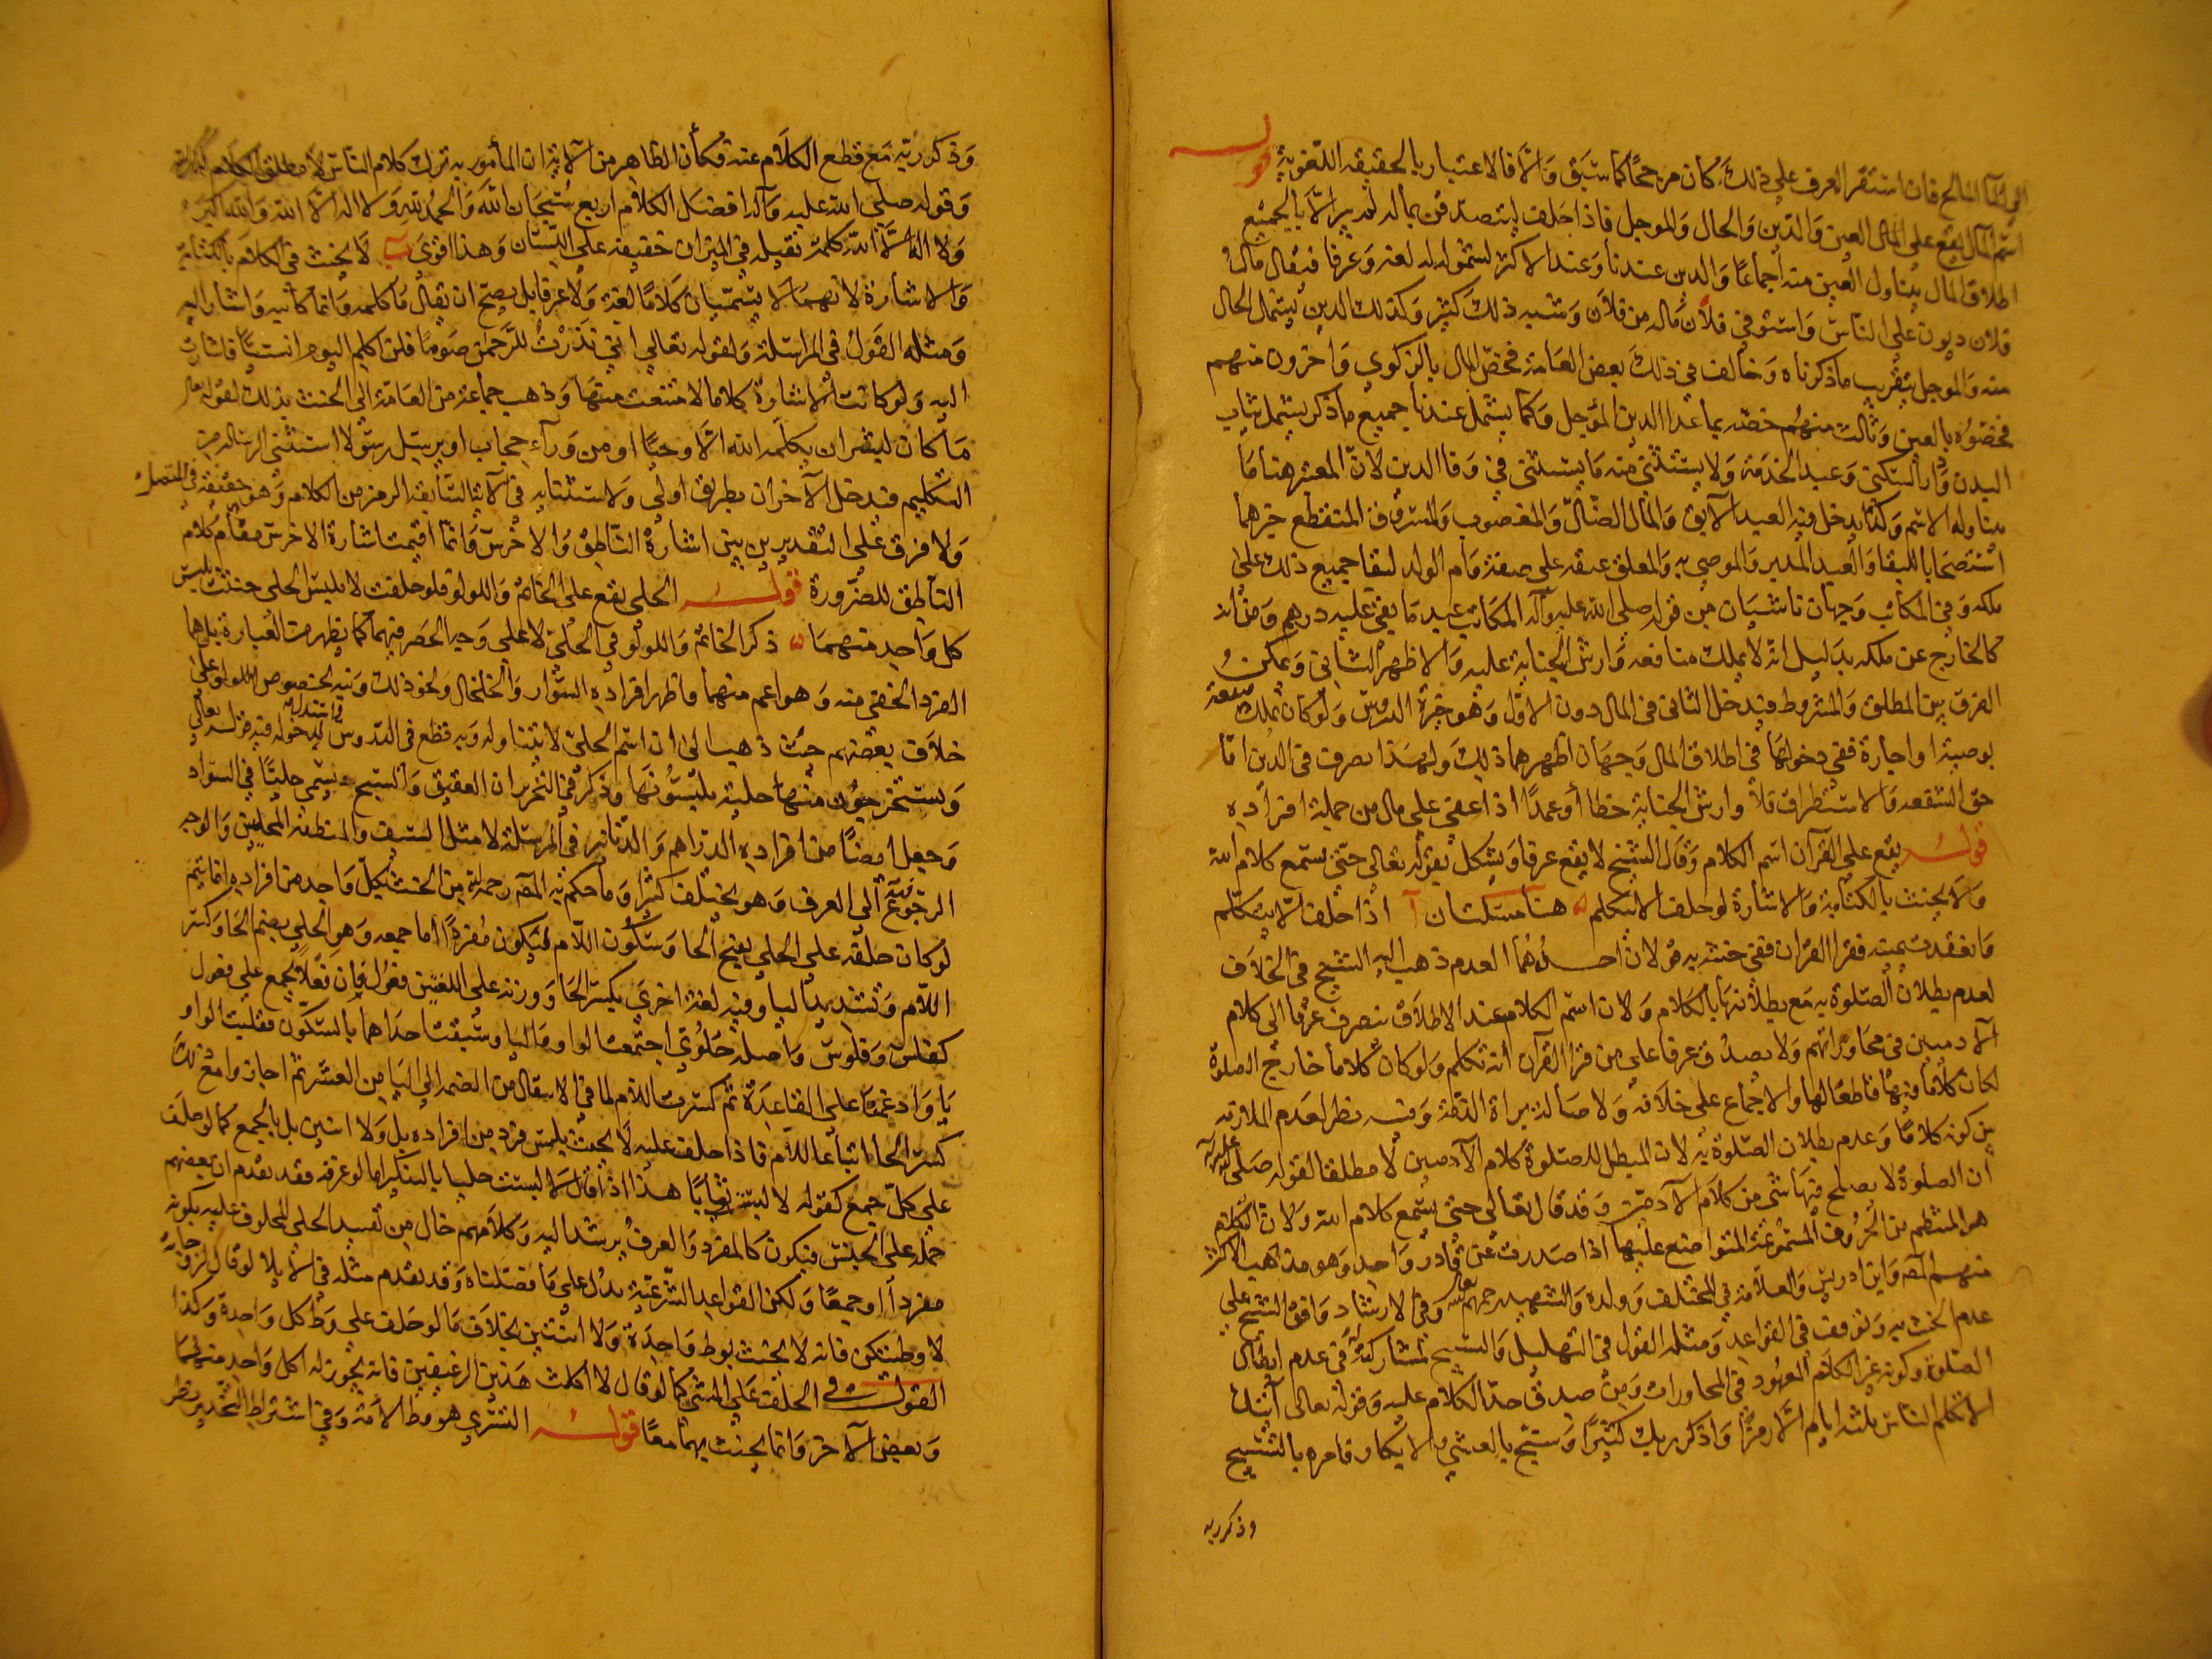 او الماء المالح فان استقر العرف على ذلك كان مرجحا كما سبق والا فالاعتبار بالحقيقه اللغوية قوله
اسم المال يقع على المال العين والدين والحال والموجل فاذا حلف ليتصدقن بماله لم يبر الا بالجميع
اطلاق المال يتناول العين منه اجماعا والدين عندنا وعند الاكثر لشموله له لغة وعرفا فيقال مال
فلان ديون على الناس واستوفى فلان ماله من فلان وشبه ذلك كثير وكذلك الدين يشمل الحال
منه والموجل بتقريب ماذكرناه وخالف في ذلك بعض العامة فخص المال بالزكوي واخرون منهم
فخصوه بالعين وثالث منهم خصه بما عدا الدين المؤجل وكما يشمل عندنا جميع ما ذكر يشمل ثياب
البدن ودار السكنى وعبد الخدمة ولا يستثنى منه ما يستثنى في وفا الدين لان المعتبر هنا ما
يتناوله الاسم وكذا يدخل فيه العبد الآبق والمال الضال والمغصوب والمسروق المنقطع خبرهما
استصحابا للبقا والعبد المدبر والموصى به والمعلق عتقه على صفة وام الولد لبقا جميع ذلك على
ملكه وفي المكاتب وجهان ناشيان من قوله صلى الله عليه وآله المكاتب عبد ما بقي عليه درهم ومن انه
كالخارج عن ملكه بدليل انه لا يملك منافعه وارش الجناية عليه والاظهر الثاني ويمكن
الفرق بين المطلق والمشروط فيدخل الثاني في المال دون الاول وهو خيرة الدروس ولو كان يملك منفعة
بوصية او اجارة ففي دخولها في اطلاق المال وجهان اظهرهما ذلك ولهذا يصرف في الدين اما
حق الشفعه والاستطراق فلا وارش الجناية خطا أو عمدا اذا عفي على مال من جملة افراده
قوله يقع على القرآن اسم الكلام وقال الشيخ لا يقع عرفا ويشكل بقوله تعالى حتى يسمع كلام الله
ولا يحنث بالكتابة والاشارة لو حلف لا يتكلم هنا مسئلتان آ اذا حلف لا يتكلم
ما نعقد يمينه فقرا القران ففي حنثه به قولان احدهما العدم ذهب اليه الشيخ في الخلاف
لعدم بطلان الصلوة به مع بطلانها بالكلام ولان اسم الكلام عند الاطلاق ينصرف عرفا الى كلام
الآدميين في محاوراتهم ولا يصدق عرفا على من قرا القرآن انه تكلم ولو كان كلاما خارج الصلوة
لكان كلاما فيها قاطعا لها والاجماع على خلافه ولاصالة براة الذمة وفيه نظر لعدم الملازمه
بين كونه كلاما وعدم بطلان الصلوة به لان المبطل للصلوة كلام الآدميين لا مطلقا لقوله صلى الله عليه وآله
ان الصلوة لا يصلح فيها شى من كلام الآدميين وقد قال تعالى حتى يسمع كلام الله ولان الكلام
هو المنتظم من الحروف المسموعة المتواضع عليها اذا صدرت عن قادر واحد وهو مذهب الاكثر
منهم المص وابن ادريس والعلامة في المختلف وولده والشهيد رحمهم الله وفي الارشاد وافق الشيخ على
عدم الحنث به وتوقف في القواعد ومثله القول في التهليل والتسبيح لمشاركته في عدم ابطال
الصلوة وكونه غير الكلام المعهود في المحاورات ومن صدق حد الكلام عليه وقوله تعالى آيتك
الا تكلم الناس ثلثه ايام الا رمزا واذكر ربك كثيرا وسبح بالعشي والابكار فامره بالتسبيح
وذكر ربه
وذكر ربه مع قطع الكلام عنه فكأن الظاهر من الآية ان المأمور به ترك كلام الناس لا مطلق الكلام
وقوله صلى الله عليه وآله افضل الكلام اربع سبحان الله والحمد لله ولا اله الا الله والله اكبر
ولا اله الا الله كلمة ثقيله في الميزان خفيفه على اللسان وهذا اقوى ب لا يحنث في الكلام بالكتابة
والاشارة لانهما لا يسميان كلاما لغة ولا عرفا بل يصح ان يقال ما كلمه وانما كاتبه واشار اليه
ومثله القول في المراسلة ولقوله تعالى اني نذرت للرحمن صوما فلن اكلم اليوم انسيا فاشارت
اليه ولو كانت الاشارة كلاما لامتنعت منها وذهب جماعة من العامة الى الحنث بذلك لقوله تعالى
ما كان لبشر ان يكلمه الله الا وحيا او من ورآء حجاب او يرسل رسولا استثنى الرسالة من
التكليم فيدخل الآخران بطريق اولى ولاستثنايه في الآية السابقة الرمز من الكلام وهو حقيقة في المتصل
ولا فرق على التقديرين بين اشارة الناطق والاخرس وانما اقيمت اشارة الاخرس مقام كلام
الناطق للضرورة قوله الحلى يقع على الخاتم واللولو فلو حلف لا يلبس الحلى حنث بلبس
كل واحد منهما ذكر الخاتم واللولو في الحلى لا على وجه الحصر فيهما كما يظهر من العبارة بل هما
الفرد الخفي منه وهو اعم منهما واظهر افراده السوار والخلخال ونحو ذلك ونبه بخصوص اللولو على
خلاف بعضهم حيث ذهب الى ان اسم الحلى لا يتناوله وبه قطع في الدروس واستدل لدخوله فيه بقوله تعالى
وتستخرجون منها حلية تلبسونها وذكر في التحرير ان العقيق والسبج يسمى حليا في السواد
وجعل ايضا من افراده الدراهم والدنانير في المرسلة لا مثل السيف والمنطقة المحليين والوجه
الرجوع فيه الى العرف وهو يختلف كثيرا وما حكم به المص رحمه الله من الحنث بكل واحد من افراده انما يتم
لو كان حلفه على الحلي بفتح الحا وسكون اللام ليكون مفردا اما جمعه وهو الحلي بضم الحا وكسر
اللام وتشديد اليا وفيه لغة اخرى بكسر الحا ووزنه على اللغتين فعول فان فعلا يجمع على فعول
كفلس وفلوس واصله حلوي اجتمعت الواو واليا وسبقت احداهما بالسكون فقلبت الواو
يا وادغمت على القاعدة ثم كسرت اللام لما في الانتقال من الضمة الى اليا من العسر ثم اجازوا مع ذلك
كسر الحا اتباعا للام فاذا حلف عليه لا يحنث بلبس فرد من افراده بل ولا اثنين بل بالجمع كما لو حلف
على كل جمع كقوله لا لبست ثيابا هذا اذا قال لا لبست حليا بالتنكير اما لو عرفه فقد تقدم ان بعضهم
حمله على الجنس فيكون كالمفرد والعرف يرشد اليه وكلامهم خال من تقييد الحلى المحلوف عليه بكونه
مفردا او جمعا ولكن القواعد الشرعية تدل على ما فصلناه وقد تقدم مثله في الايلا لو قال لزوجاته
لا وطئتكن فانه لا يحنث بوطء واحدة ولا اثنتين بخلاف ما لو حلف على وطء كل واحدة وكذا
القول في الحلف على المثنى كما لو قال لا اكلت هذين الرغيفين فانه يجوز له اكل واحد منهما
وبعض الآخر وانما يحنث بهما معا قوله التسري هو وطء الامة وفي اشتراط التخدير نظر